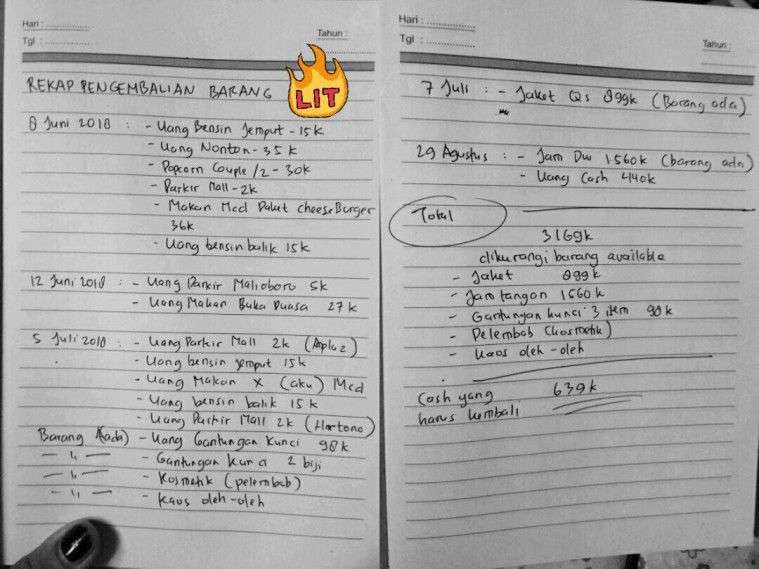 Hari : ..............
Tgl : ..............
Tahun :
REKAP PENGEMBALIAN BARANG
LIT
8 Juni 2018 : - Uang Bensin Jemput - 15k
- Uang Nonton - 35k
- Popcorn Couple /2 - 30k
- Parkir Mall - 2k
- Makan Mcd Paket CheeseBurger
36k
- Uang bensin balik 15k
12 Juni 2018 : - Uang Parkir Malioboro 5k
- Uang Makan Buka Puasa 27k
5 Juli 2018 : - Uang Parkir Mall 2k (Aplaz)
- Uang bensin jemput 15k
- Uang Makan X (aku) Mcd
- Uang bensin balik 15k
- Uang Parkir Mall 2k (Hartono)
Barang (ada) - Uang Gantungan Kunci 98k
— " — - Gantungan Kunci 2 biji
— " — - Kosmetik (pelembab)
— " — - Kaos oleh-oleh
Hari : ..............
Tgl : ..............
Tahun :
7 Juli : - Jaket Qs 899k (Barang ada)
29 Agustus : - Jam DW 1560k (barang ada)
- Uang Cash 440k
Total
3169k
dikurangi barang available
- Jaket 899k
- Jam tangan 1560k
- Gantungan kunci 3 item 98k
- Pelembab (kosmetik)
- Kaos oleh-oleh
Cash yang 639k
harus kembali